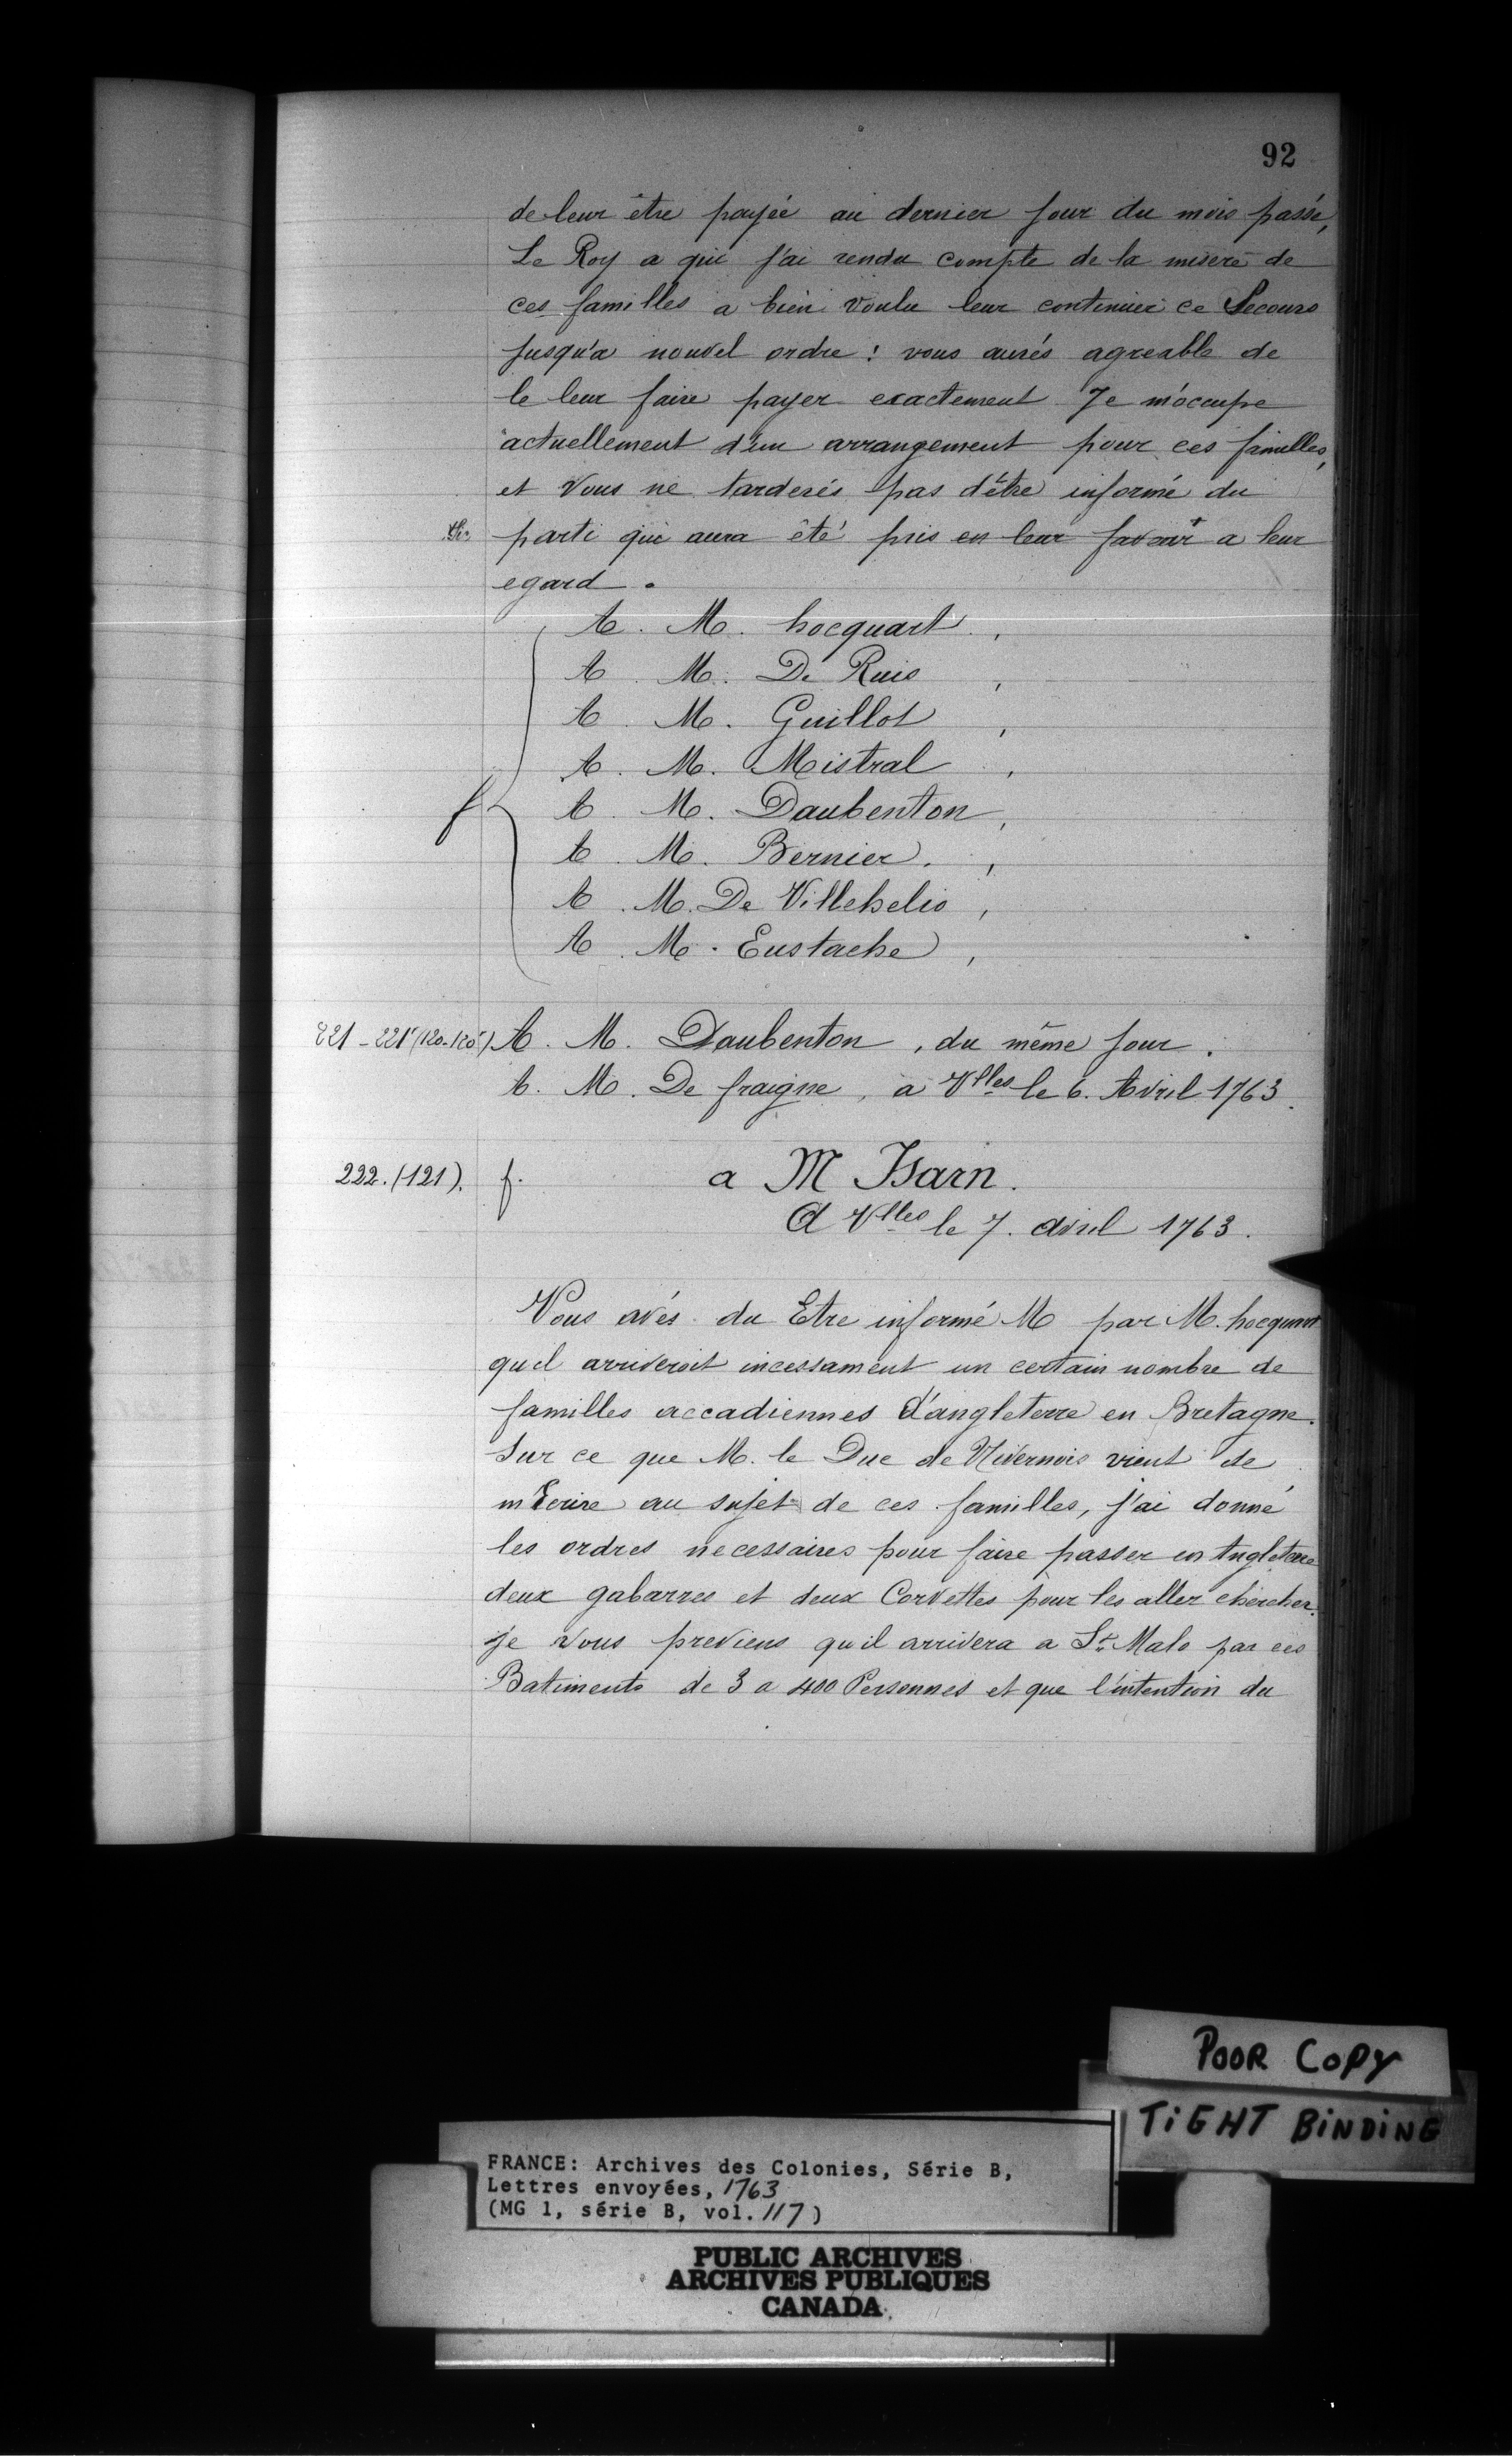 92
de leur être payée au dernier jour du mois passé,
Le Roy a qui j'ai rendu compte de la misere de
ces familles a bien voulu leur continuer ce Secours
jusqu'a nouvel ordre : vous aurés agreable de
le leur faire payer exactement Je m'occupe
actuellement d'un arrangement pour ces familles,
et vous ne tarderés pas d'être informé du
parti qui aura été pris en leur faveur + a leur
egard.
A M. hocquart,
A M. De Ruis,
A M. Guillot,
A M. Mistral,
f A M. Daubenton,
A M. Bernier,
A M. De Villehelio,
A M. Eustache,
221-221 (120-120) A M. Daubenton, du même jour.
A M. De fraigne, a Vlles le 6. Avril 1763.
222. (121). f. a M Isarn.
A Vlles le 7. avril 1763.
Vous avés du Etre informé M par M. hocquart
qu'il arriveroit incessament un certain nombre de
familles accadiennes d'angleterre en Bretagne.
Sur ce que M. le Duc de Nivernois vient de
m'Ecrire au sujet de ces familles, j'ai donné
les ordres necessaires pour faire passer en Angleterre
deux gabarres et deux Corvettes pour les aller chercher.
je vous previens qu'il arrivera a St. Malo par ces
Batiments de 3 a 400 Personnes et que l'intention du
POOR COPY
TIGHT BINDING
FRANCE: Archives des Colonies, Série B,
Lettres envoyées, 1763
(MG 1, série B, vol. 117)
PUBLIC ARCHIVES
ARCHIVES PUBLIQUES
CANADA